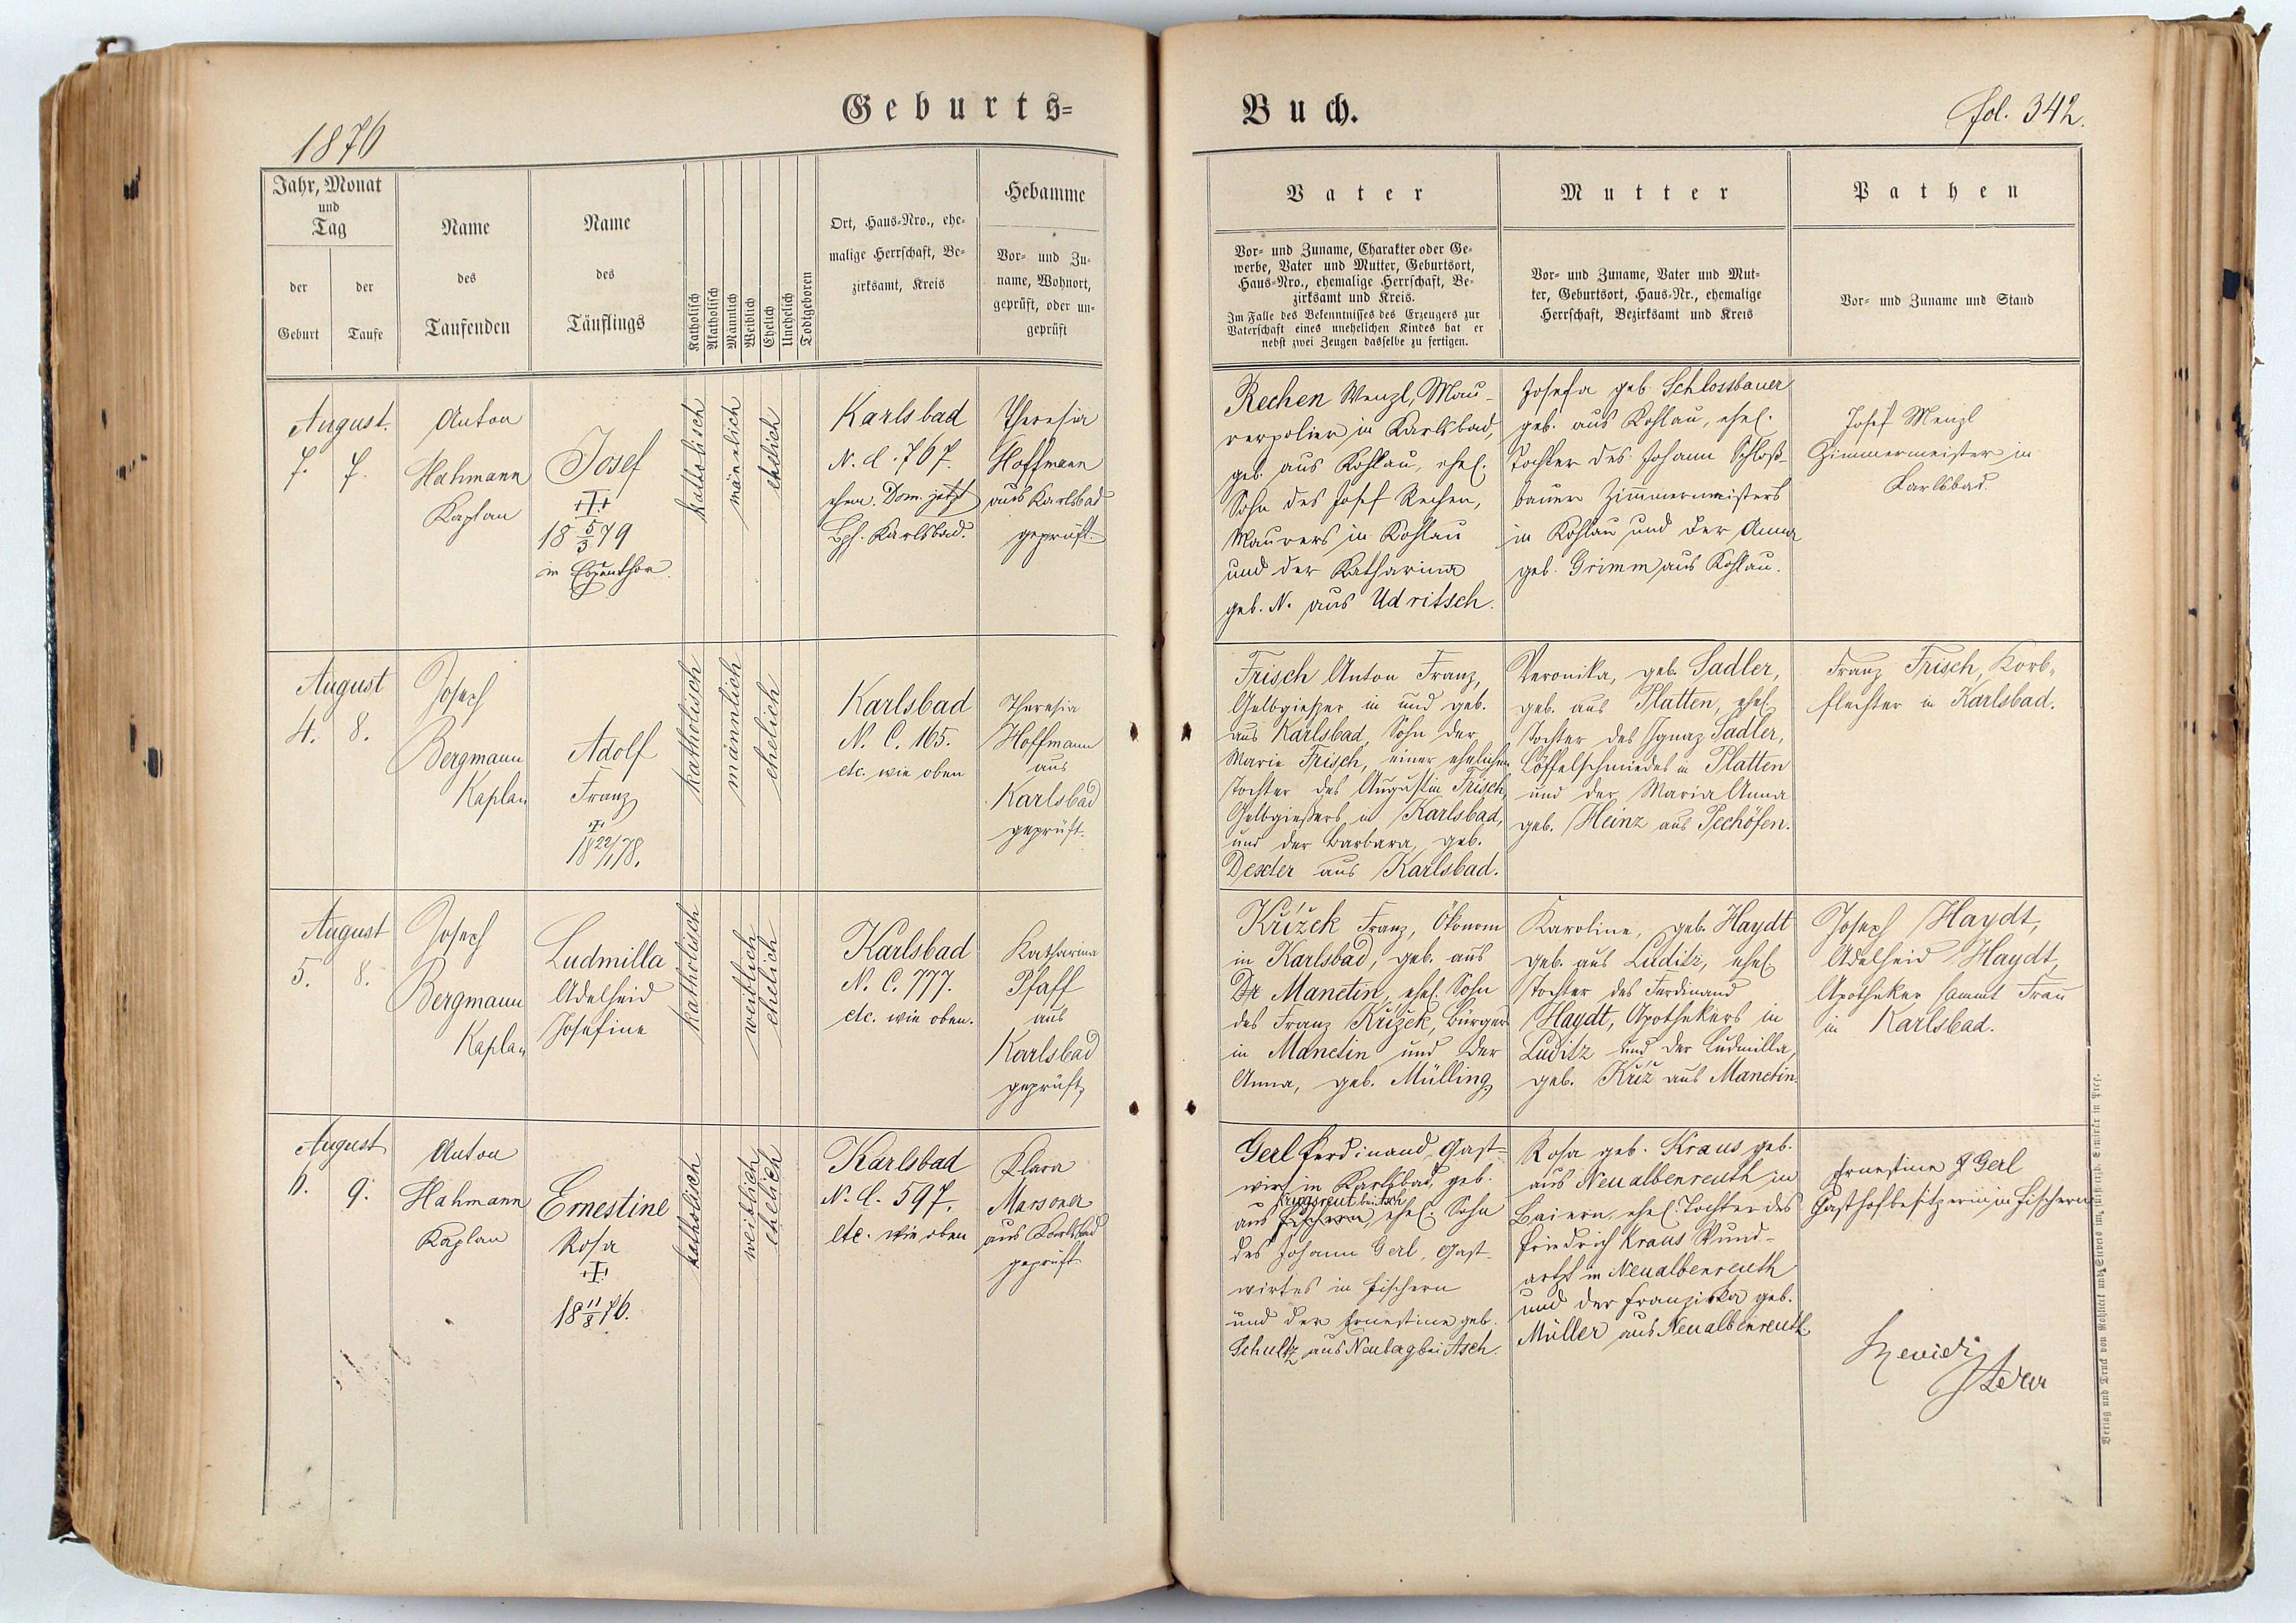 Geburts=
Buch.
1876
fol. 342.
Jahr, Monat
und
Tag
der
Geburt
der
Taufe
Name
des
Taufenden
Name
des
Täuflings
Katholisch
Akatholisch
Männlich
Weiblich
Ehelich
Unehelich
Todtgeboren
Ort, Haus-Nro., ehe-
malige Herrschaft, Be-
zirksamt, Kreis
Hebamme
Vor- und Zu-
name, Wohnort,
geprüft, oder un-
geprüft
Vater
Vor- und Zuname, Charakter oder Ge-
werbe, Vater und Mutter, Geburtsort,
Haus-Nro., ehemalige Herrschaft, Be-
zirksamt und Kreis.
Im Falle des Bekenntnisses des Erzeugers zur
Vaterschaft eines unehelichen Kindes hat er
nebst zwei Zeugen dasselbe zu fertigen.
Mutter
Vor- und Zuname, Vater und Mut-
ter, Geburtsort, Haus-Nr., ehemalige
Herrschaft, Bezirksamt und Kreis
Pathen
Vor- und Zuname und Stand
August.
7. 7.
Anton
Hahmann
Kaplan
Josef
18 5/3 79
in Espenthor.
katholisch
männlich
ehelich
Karlsbad
N. C. 767.
ehem. Dom. jetzt
Bzh. Karlsbad.
Theresia
Hoffmann
aus Karlsbad
geprüft.
Rechen Wenzl, Mau-
rerpolier in Karlsbad,
geb. aus Kohlau, ehel.
Sohn des Josef Rechen,
Maurers in Kohlau
und der Katharina
geb. N. aus Udritsch.
Josefa geb. Schlossbauer
geb. aus Kohlau, ehel.
Tochter des Johann Schloß-
bauer Zimmermeisters
in Kohlau und der Anna
geb. Grimm aus Kohlau.
Josef Menzl
Zimmermeister in
Karlsbad.
August
4. 8.
Joseph
Bergmann
Kaplan
Adolf
Franz
18 22/1 78.
katholisch
männlich
ehelich
Karlsbad
N. C. 165.
etc. wie oben
Theresia
Hoffmann
aus
Karlsbad
geprüft.
Frisch Anton Franz,
Gelbgießer in und geb.
aus Karlsbad, Sohn der
Marie Frisch, einer ehelichen
Tochter des Augustin Frisch,
Gelbgießers in Karlsbad,
und der Barbara, geb.
Dexter aus Karlsbad.
Veronika, geb. Sadler,
geb. aus Platten, ehel.
Tochter des Ignaz Sadler,
Löffelschmiedes in Platten
und der Maria Anna
geb. Heinz aus Pechöfen.
Franz Frisch, Korb-
flechter in Karlsbad.
August
5. 8.
Joseph
Bergmann
Kaplan
Ludmilla
Adelheid
Josefine
katholisch
weiblich
ehelich
Karlsbad
N. C. 777.
etc. wie oben.
Katharina
Pfaff
aus
Karlsbad
geprüft
Křížek Franz, Ökonom
in Karlsbad, geb. aus
Manetin, ehel. Sohn
des Franz Křížek, Bürger
in Manetin und der
Anna, geb. Mülling
Karoline, geb. Haydt
geb. aus Luditz, ehel.
Tochter des Ferdinand
Haydt, Apothekers in
Luditz und der Ludmilla,
geb. Kříž aus Manetin.
Joseph Haydt,
Adelheid Haydt,
Apotheker sammt Frau
in Karlsbad.
August
6. 9.
Anton
Hahmann
Kaplan
Ernestine
Rosa
18 11/8 76.
katholisch
weiblich
ehelich
Karlsbad
N. C. 597.
etc. wie oben
Klara
Marsoner
aus Karlsbad
geprüft
Gerl Ferdinand, Gast-
wirt in Karlsbad, geb.
aus Fischern, ehel. Sohn
des Johann Gerl, Gast-
wirtes in Fischern
und der Ernestine geb.
Schultz aus Neuberg bei Asch.
Rosa geb. Kraus geb.
aus Neualbenreuth in
Baiern, ehel. Tochter des
Friedrich Kraus Wund-
arzt in Neualbenreuth
und der Franziska geb.
Müller aus Neualbenreuth
Ernestine Gerl
Gasthofbesitzerin in Fischern